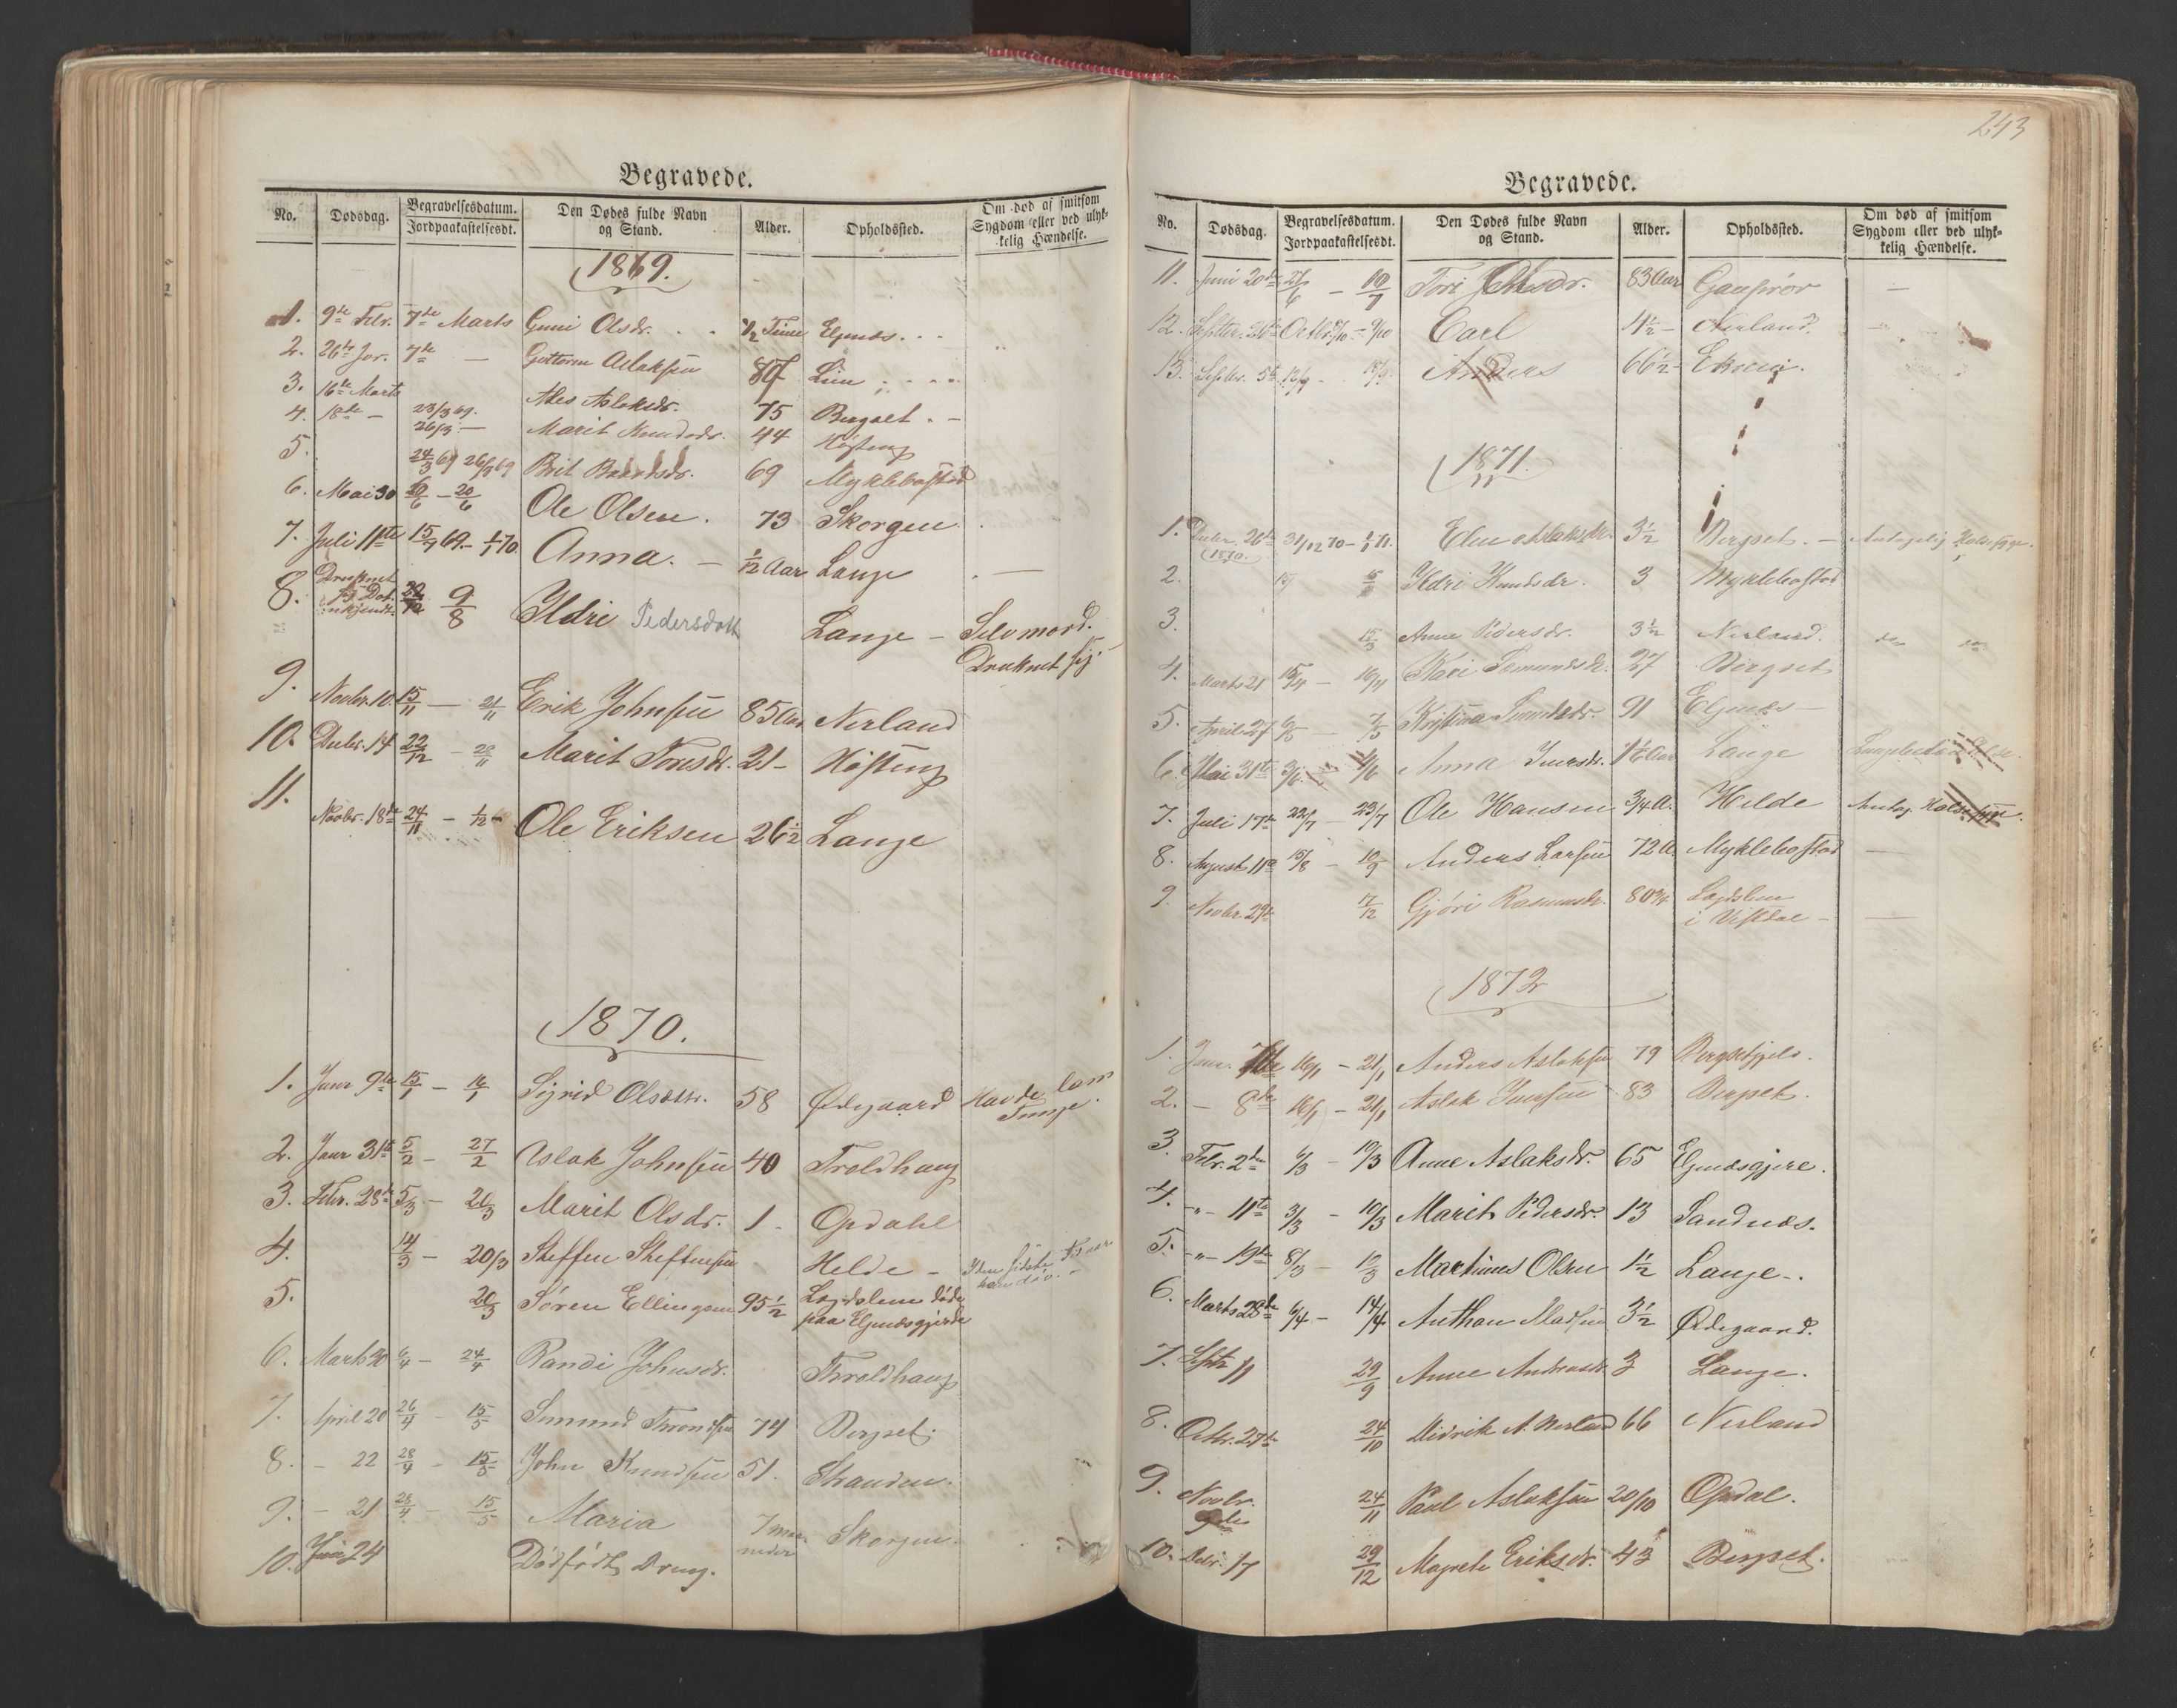 Begravede.
No. Dødsdag. Begravelsesdatum. Jordpaakastelsesdt. Den Dødes fulde Navn og Stand. Alder. Opholdssted. Om død af smitsom Sygdom eller ved ulykkelig Hændelse.
1869.
1. 9de Febr. 7de Marts Guni Olsdr. ½ Time Elgenæs
2. 26de Jan. 7de — Guttorm Aslaksen 87 Lien
3. 16de Marts Ales Aslaksdr. 75 Bergset
4. 18de — 23/3 69. 26/3 — Marit Knudsdr. 44 Høsteng
5. 24/3 69 26/3 69 Brit Baardsdr. 69 Myklebostad
6. Mai 30 10/6 – 20/6 Ole Olsen. 73 Skorgen
7. Juli 11te 15/7 69 – 1/1 70. Anna. — 1/12 Aar Lange —
8. Druknet Dat. ukjendt 9/8 Ildri Pedersdatt Lange – Selvmord. Druknet sig
9. Novbr. 10. 15/11 — 21/11 Erik Johnsen 85 Aar Nerland
10. Decbr. 14 22/12 – Marit Toresdr. 21 – Høsteng
11. Novbr. 18de 24/11 – 1/12 Ole Eriksen 26½ Lange
1870.
1. Janr 9de 15/1 – 16/1 Sigrid Olsdtr. 58 Ødegaard Havde lam Tunge.
2. Janr 31te 5/2 – 27/2 Aslak Johnsen 40 Troldhaug
3. Febr. 28de 5/3 – 20/3 Marit Olsdr. 1 – Opdahl
4. 14/3 – 20/3 Steffen Steffensen Helde –
5. 20/3 Søren Ellingsen 95½ Logdslem døde paa Elgenæsgjerde
6. Marts 30 6/4 – 24/4 Randi Johnsdr. Throldhaug
7. April 20 26/4 – 15/5 Semund Throndsen 74 Bergset
8. – 22 28/4 – 15/5 John Knudsen 51. Stranden.
9. – 21 28/4 – 15/5 Maria 7 maaneder Skorgen
10. Juni 24 Dødfødt Dreng.
243
Begravede.
No. Dødsdag. Begravelsesdatum. Jordpaakastelsesdt. Den Dødes fulde Navn og Stand. Alder. Opholdssted. Om død af smitsom Sygdom eller ved ulykkelig Hændelse.
11. Juni 20de – 10/7 Tori 83 Aar —
12. Septbr. 26de Octbr. 2/10 – 9/10 Carl 4½ – Nerland.
13. Septbr. 5te Anders 66½
1871.
1. Decbr. 20de (1870.) 31/12 70 – 1/1 71. Elen Aslaksdr. 3½ Bergset. –
2. Ildri Knudsdr. 3 Myklebostad
3. 15/3 Anne Pedersdr. 3½ Nerland.
4. Marts 21 – 10/4 Kari Semundsdr. 27 Bergset
5. April 27 – 7/5 Kristina 91 Elgenæs –
6. Mai 31te 3/6 – 4/6 Anna Iversdr. Lange
7. Juli 17de 22/7 – 23/7 Ole Hansen 3/4 A. Helde
8. August 11te 15/8 – 10/9 Anders Larsen 72 A. Myklebostad —
9. Novbr. 29de 17/12 Gjøri Rasmusdr. 80¾ Logdslem i Vistdal –
1872
1. Janr. 16/1 – 21/1 Anders Aslaksen 79 Bergsetgjelv.
2. – 8de 16/1 – 21/1 Aslak Iversen 83 Bergset.
3. Febr. 2den – 10/3 Anne Aslaksdr. 65 Elgenæsgjere.
4. –"– 11te 3/3 – 10/3 Marit Pedersdr. 13 Sandnes.
5. –"– 19de 8/3 – 10/3 Martinus Olsen 1½ Lange –.
6. Marts 28de 6/4 – 14/4 Anthon Madsen 3½ Ødegaard.
7. Septbr 11 29/9 Anne Andreasdr 3 Lange.
8. Octbr. 24/10 Didrik A. Nerland 66 Nerland
9. Novbr. 24/11 Paul Aslaksen 20/10 Opdal.
10. Decbr. 17 29/12 Magrete Eriksdr. 43 Bergset.